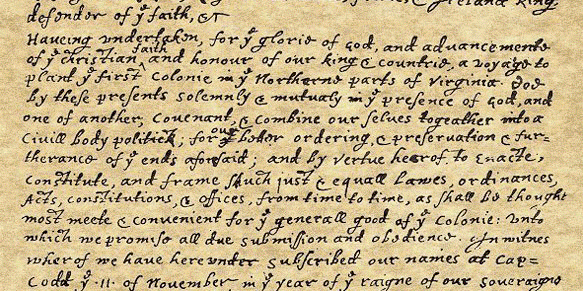 Ireland king,
defender of yͤ faith, &c
Haveing undertaken, for yͤ glorie of God, and advancemente
of yͤ christian ^faith and honour of our king & countrie, a voyage to
plant yͤ first colonie in yͤ Northerne parts of Virginia. Doe
by these presents solemnly & mutualy in yͤ presence of God, and
one of another, covenant, & combine our selves togeather into a
civill body politick; for ^our better ordering, & preservation & fur=
therance of yͤ ends aforesaid; and by vertue hearof, to enacte,
constitute, and frame shuch just & equall lawes, ordinances,
Acts, constitutions, & offices, from time to time, as shall be thought
most meete & convenient for yͤ generall good of yͤ Colonie: unto
which we promise all due submission and obedience. In witnes
wherof we have hereunder subscribed our names at Cap=
Codd yͤ .11. of November in yͤ year of yͤ raigne of our soveraigne